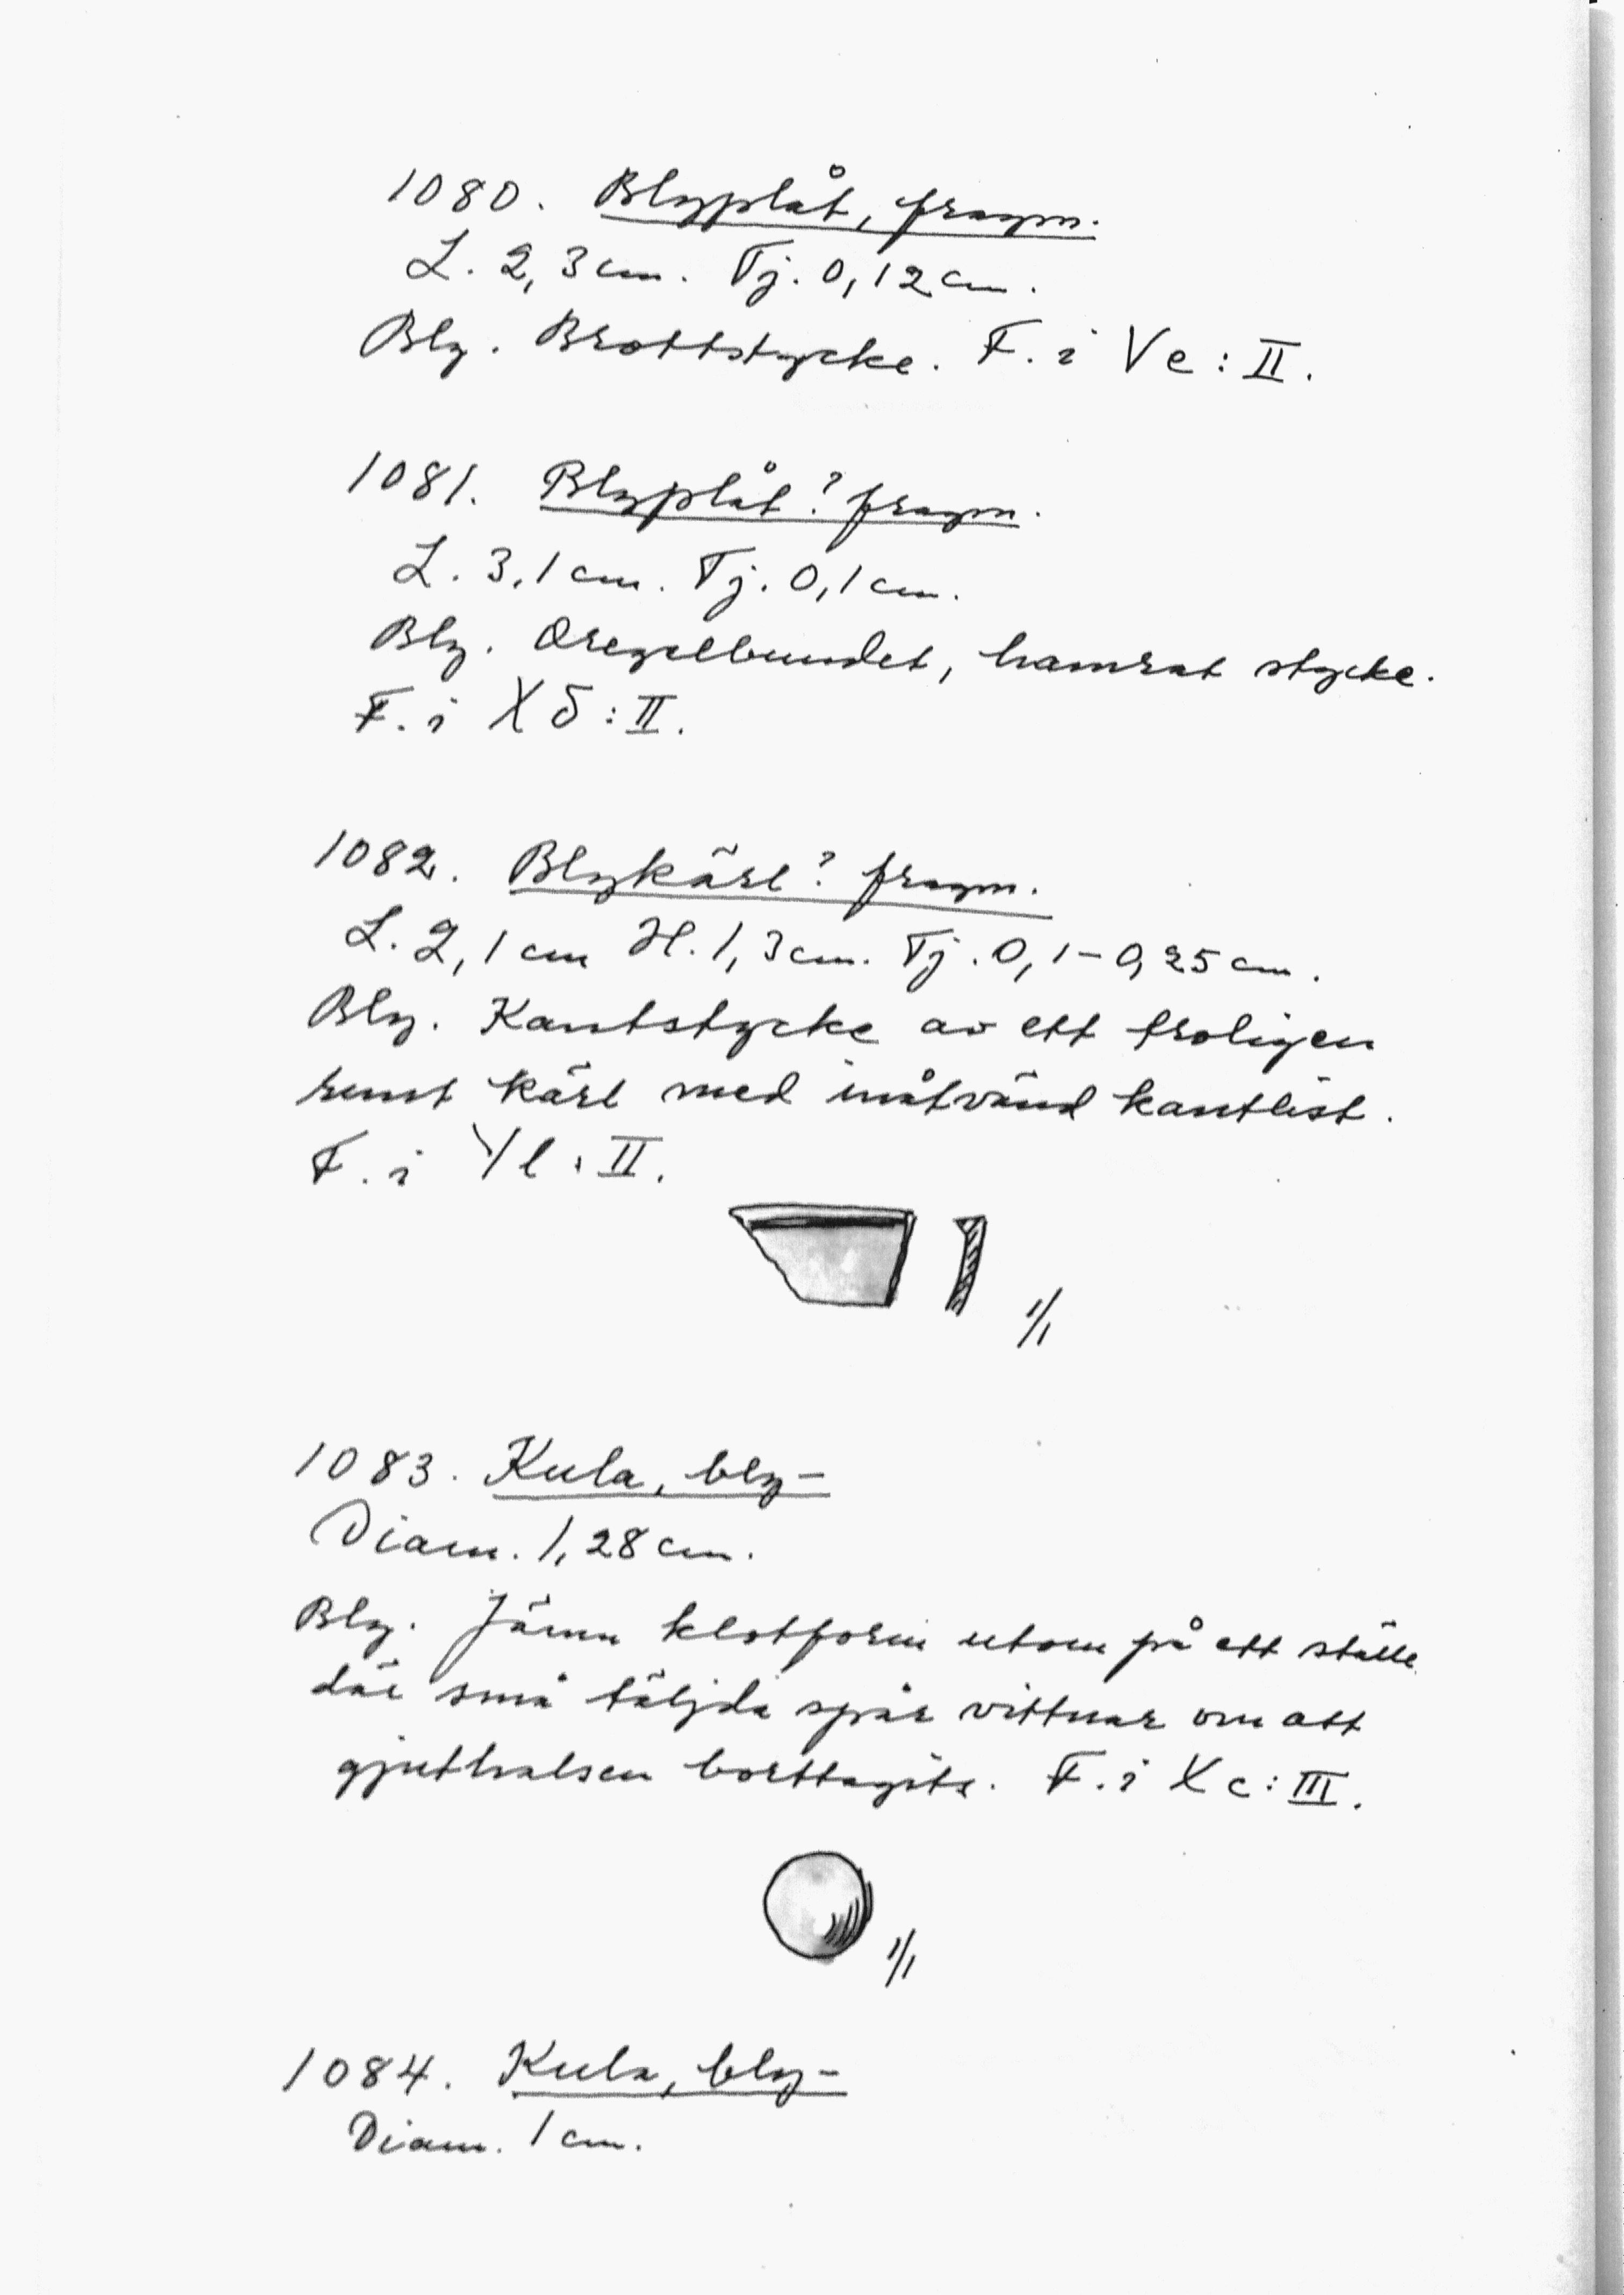 1080. Blyplåt, fragm.
L. 2,3 cm. Tj. 0,12 cm.
Bly. Brottstycke. F. i Ve : II.
1081. Blyplåt? fragm.
L. 3,1 cm. Tj. 0,1 cm.
Bly. Oregelbundet, hamrat stycke.
F. i X5 : II.
1082. Blykärl? fragm.
L. 2,1 cm H. 1,3 cm. Tj. 0,1-0,25 cm.
Bly. Kantstycke av ett troligen
runt kärl med inåtvänd kantlist.
F. i Yl : II.
1/1
1083. Kula, bly-
Diam. 1,28 cm.
Bly. Jämn klotform utom på ett ställe
där små täljda spår vittnar om att
gjuthalsen borttagits. F. i Xc : III.
1/1
1084. Kula, bly-
Diam. 1 cm.